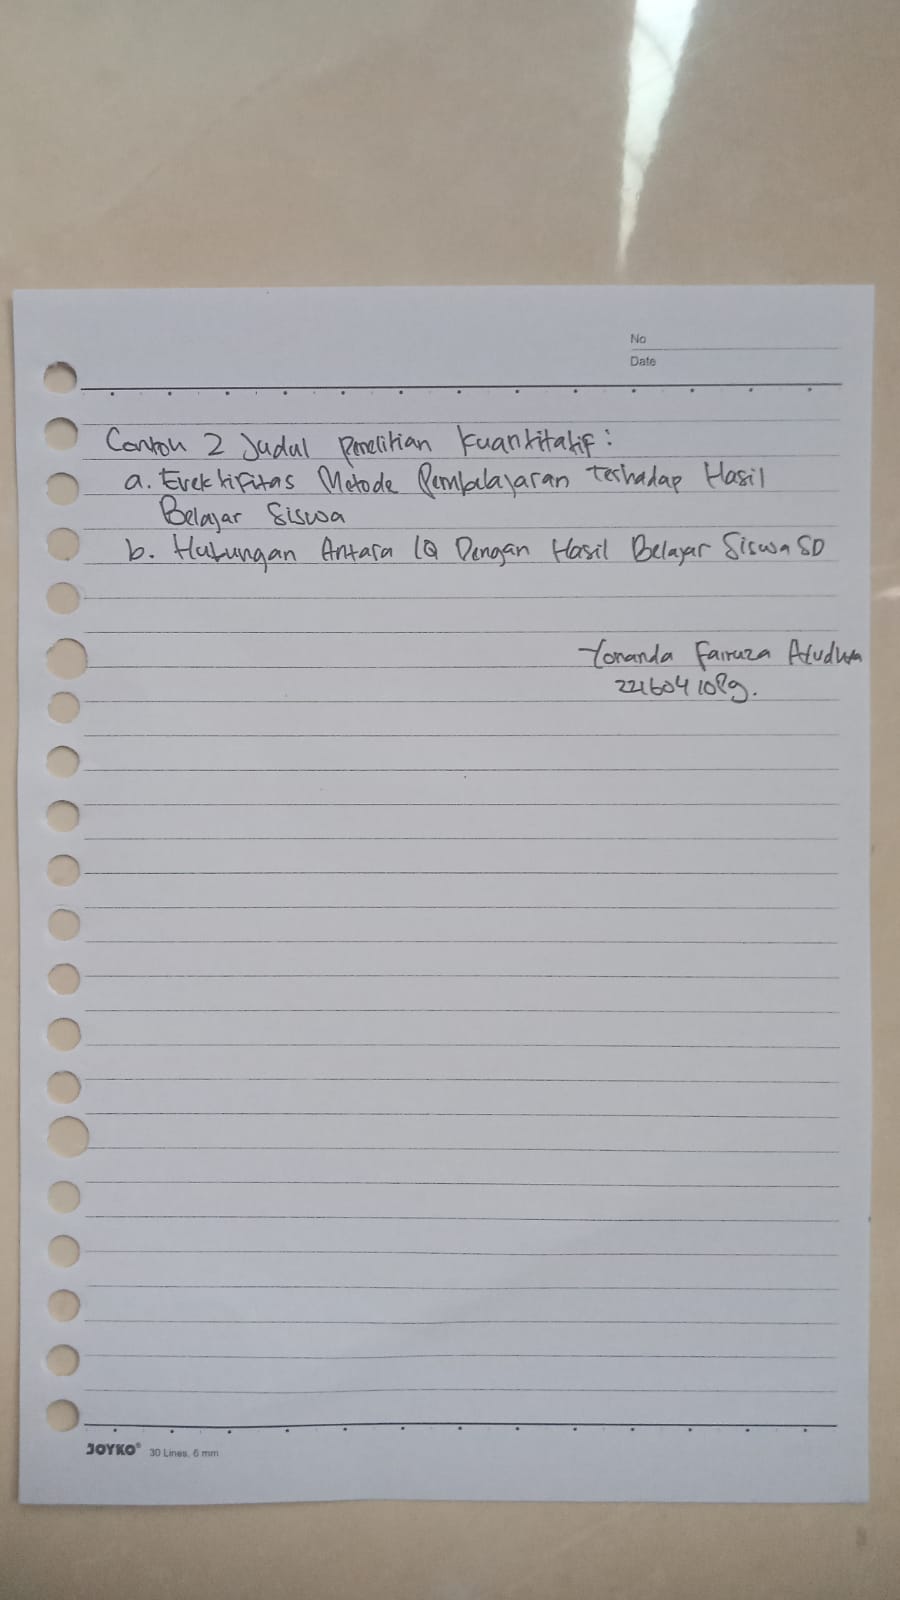 No
Date
Contoh 2 Judul Penelitian Kuantitatif :
a. Evektifitas Metode Pembelajaran Terhadap Hasil
Belajar Siswa
b. Hubungan Antara IQ Dengan Hasil Belajar Siswa SD
Yonanda Fairuza
JOYKO® 30 Lines, 6 mm